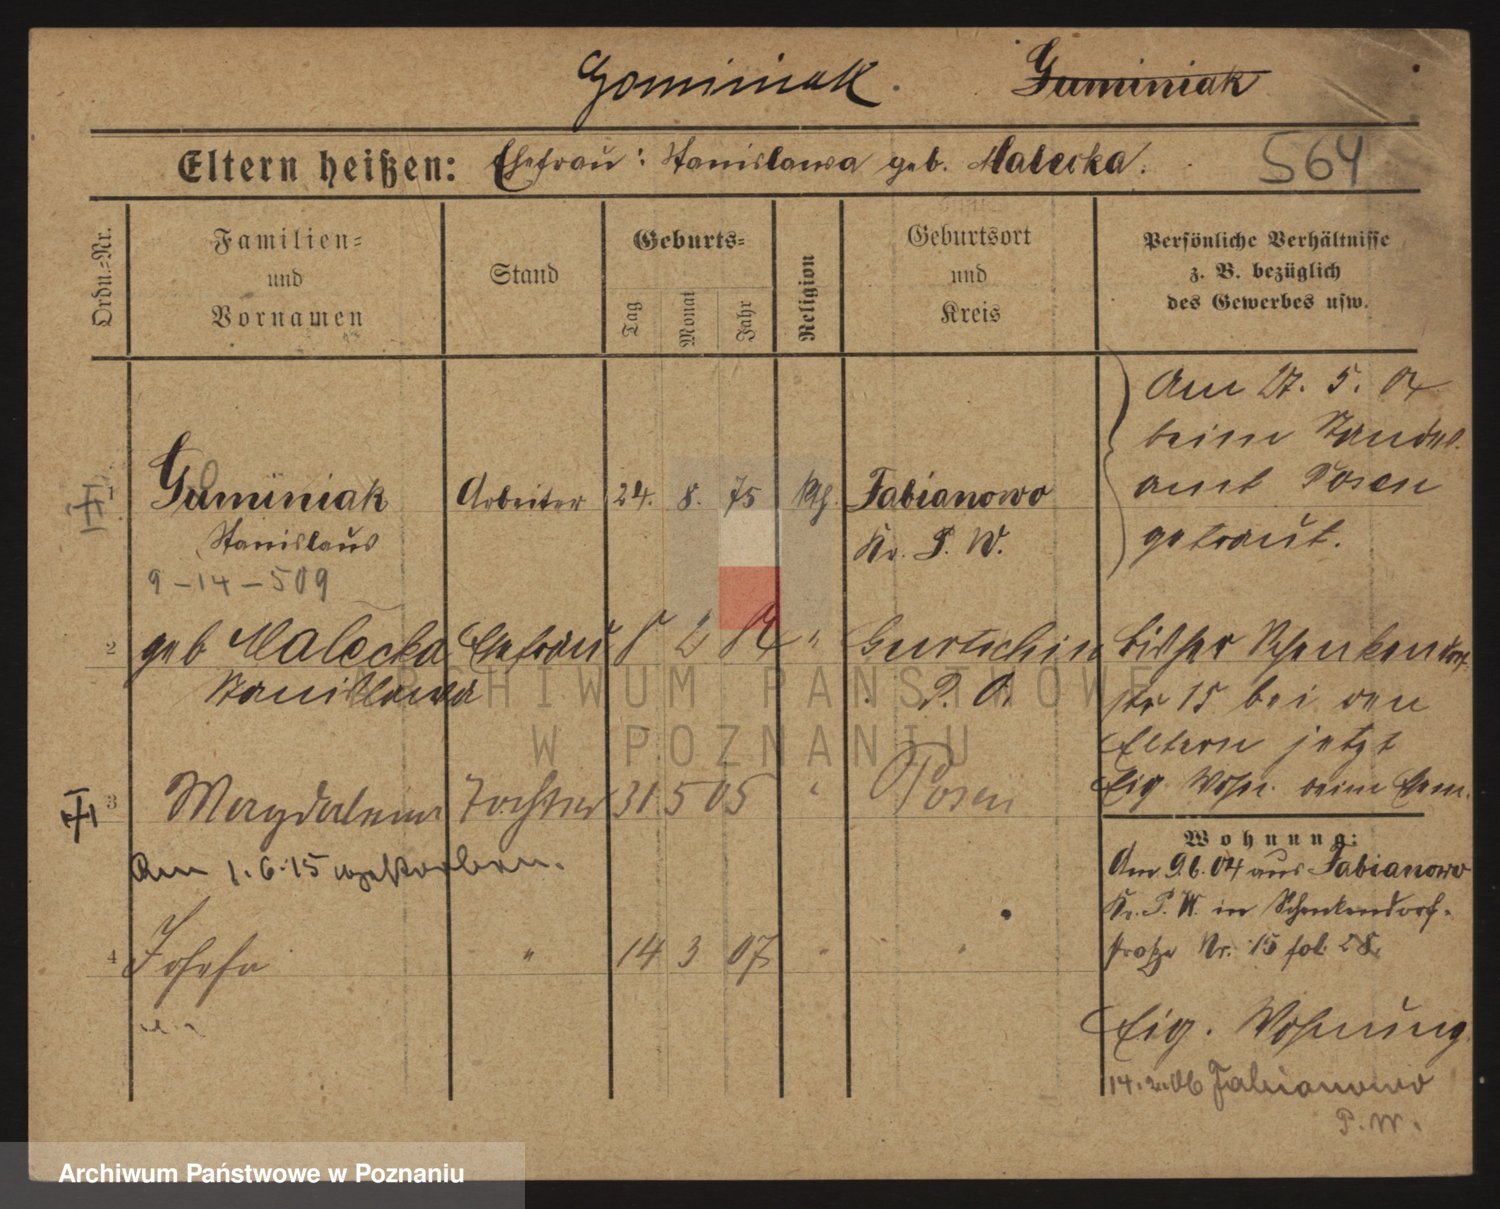 Gominiak. Guminiak
Eltern heißen: Ehefrau: Stanislawa geb. Malecka.
564
Ordn.-Nr.
Familien-
und
Vornamen
Stand
Geburts-
Tag
Monat
Jahr
Religion
Geburtsort
und
Kreis
Persönliche Verhältnisse
z. B. bezüglich
des Gewerbes usw.
1 Guminiak Arbeiter 24. 8. 75 kth. Fabianowo
Stanislaus Kr. P. W.
9-14-509
Am 27. 5. 04
beim Standes-
amt Posen
getraut.
2 geb Malecka Ehefrau 8 2 " Gurtschin
Stanislawa P. O.
bisher Schenkendorf
str 15 bei den
Eltern jetzt
Eig Wohn. beim Ehem.
3 Magdalena Tochter 31 5 05 " Posen
Am 1.6.15 gestorben.
4 Josefa " 14 3 07 " "
Wohnung:
Am 9.6.04 aus Fabianowo
Kr. P. W. in Schenkendorf-
straße Nr. 15 fol 28.
Eig. Wohnung
14.2.06 Fabianowo
P. W.
ARCHIWUM PAŃSTWOWE
W POZNANIU
Archiwum Państwowe w Poznaniu